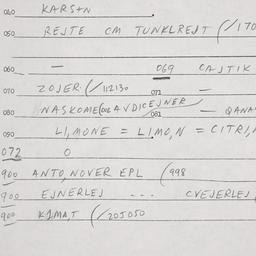 040 KARSTN
050 REJTE CM TUNKLREJT (/170
060 — 069 CAJTIK
070 ZOJER (/112130 071 —
080 NASKOME (OLE AVDICEJNER 081 — QANA
090 LI, MONE = LIMO, N = CITRI,
072 0
900 ANTO, NOVER EPL (998
900 EJNERLEJ --- CVEJERLEJ
900 KLIMA, T (/205050